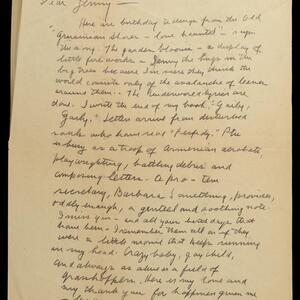 Dear Jenny—
Here are birthday tidings from the Old
Grusinian slover - love haunted -
The garden blooms - a display of
little fireworks -
big trees because I'm sure they think the
world consists only of the avalanche of leaves
around them. . The Underworld lyrics are
done. I write the end of my book, "Gaily,
Gaily." Letters arrive from disturbed
souls who have read "Perfidy."
is busy as a troop of Armenian acrobats,
playwrighting, battling debris and
composing letters. A pro-tem
secretary, Barbara Something, provides,
oddly enough, a genteel and soothing note.
I miss you - and all your birthdays that
have been - I remember them all as if they
were a little movie that keeps running
in my head. Crazy baby, gay child,
and always as alive as a field of
grasshoppers. Here is my love and
my thank you for happiness given me